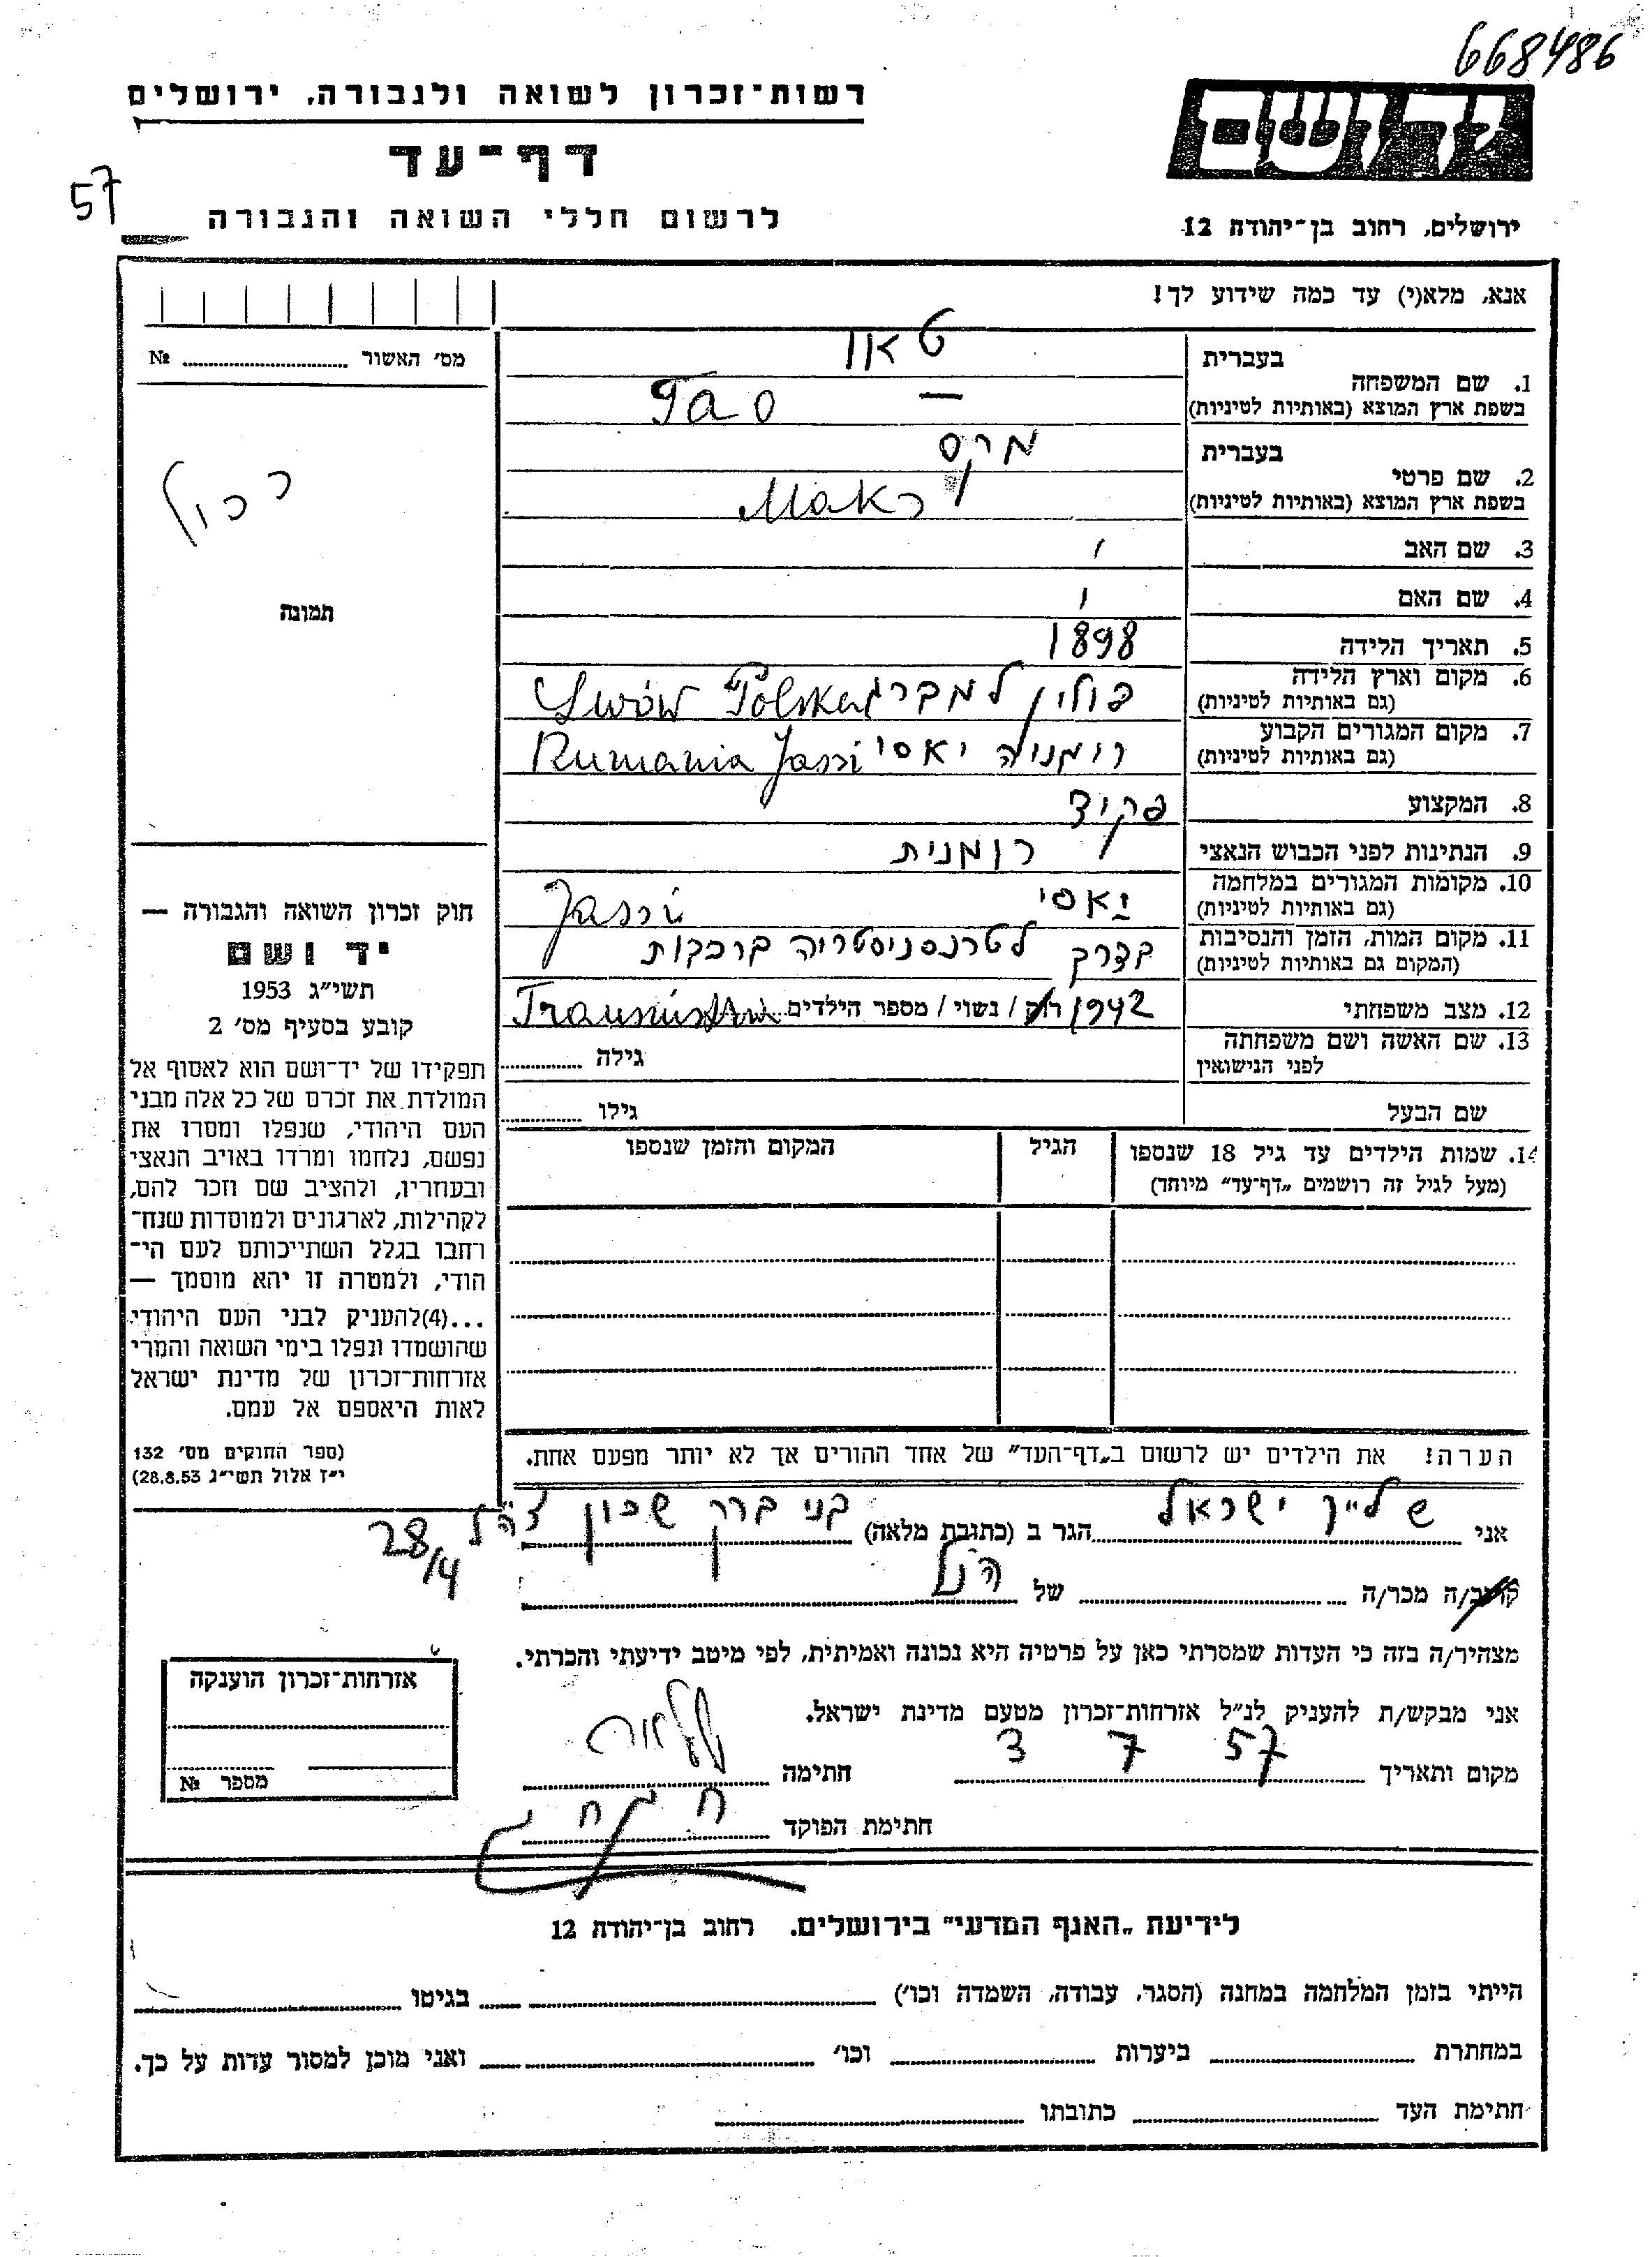 668486
רשות־זכרון לשואה ולגבורה, ירושלים
יד ושם
דף־עד
57
לרשום חללי השואה והגבורה
ירושלים, רחוב בן־יהודה 12
אנא, מלא(י) עד כמה שידוע לך!
מס׳ האשור № 
בעברית
טאו
1. שם המשפחה
בשפת ארץ המוצא (באותיות לטיניות)
Tao
בעברית
מרקס
2. שם פרטי
בשפת ארץ המוצא (באותיות לטיניות)
3. שם האב
4. שם האם
תמונה
5. תאריך הלידה
1898
6. מקום וארץ הלידה
(גם באותיות לטיניות)
פולין למברג Lwów Polska
7. מקום המגורים הקבוע
(גם באותיות לטיניות)
רומניה יאסי Rumania Jassi
8. המקצוע
פקיד
9. הנתינות לפני הכבוש הנאצי
רומנית
10. מקומות המגורים במלחמה
(גם באותיות לטיניות)
יאסי Jassi
11. מקום המות, הזמן והנסיבות
(המקום גם באותיות לטיניות)
בדרך לטרנסניסטריה ברכבות
12. מצב משפחתי
1942 רוק / נשוי / מספר הילדים
13. שם האשה ושם משפחתה
לפני הנישואין
גילה
שם הבעל
גילו
14. שמות הילדים עד גיל 18 שנספו
(מעל לגיל זה רושמים „דף־עד״ מיוחד)
הגיל
המקום והזמן שנספו
חוק זכרון השואה והגבורה —
יד ושם
תשי״ג 1953
קובע בסעיף מס׳ 2
תפקידו של יד־ושם הוא לאסוף אל
המולדת את זכרם של כל אלה מבני
העם היהודי, שנפלו ומסרו את
נפשם, נלחמו ומרדו באויב הנאצי
ובעוזריו, ולהציב שם וזכר להם,
לקהילות, לארגונים ולמוסדות שנח־
רחבו בגלל השתייכותם לעם הי־
הודי, ולמטרה זו יהא מוסמך —
...(4)להעניק לבני העם היהודי
שהושמדו ונפלו בימי השואה והמרי
אזרחות־זכרון של מדינת ישראל
לאות היאספם אל עמם.
(ספר החוקים מס׳ 132
י״ז אלול תשי״ג 28.8.53)
הערה! את הילדים יש לרשום ב„דף־העד״ של אחד ההורים אך לא יותר מפעם אחת.
אני שלייך ישראל הגר ב (כתובת מלאה) בני ברק שכון צה״ל
28/4
קרוב/ה מכר/ה של הנ״ל
מצהיר/ה בזה כי העדות שמסרתי כאן על פרטיה היא נכונה ואמיתית, לפי מיטב ידיעתי והכרתי.
אני מבקש/ת להעניק לנ״ל אזרחות־זכרון מטעם מדינת ישראל.
מקום ותאריך 3 7 57 חתימה
חתימת הפוקד
אזרחות־זכרון הוענקה
מספר №
לידיעת „האגף המדעי״ בירושלים. רחוב בן־יהודה 12
הייתי בזמן המלחמה במחנה (הסגר, עבודה, השמדה וכו׳) בגיטו
במחתרת ביערות וכו׳ ואני מוכן למסור עדות על כך.
חתימת העד כתובתו